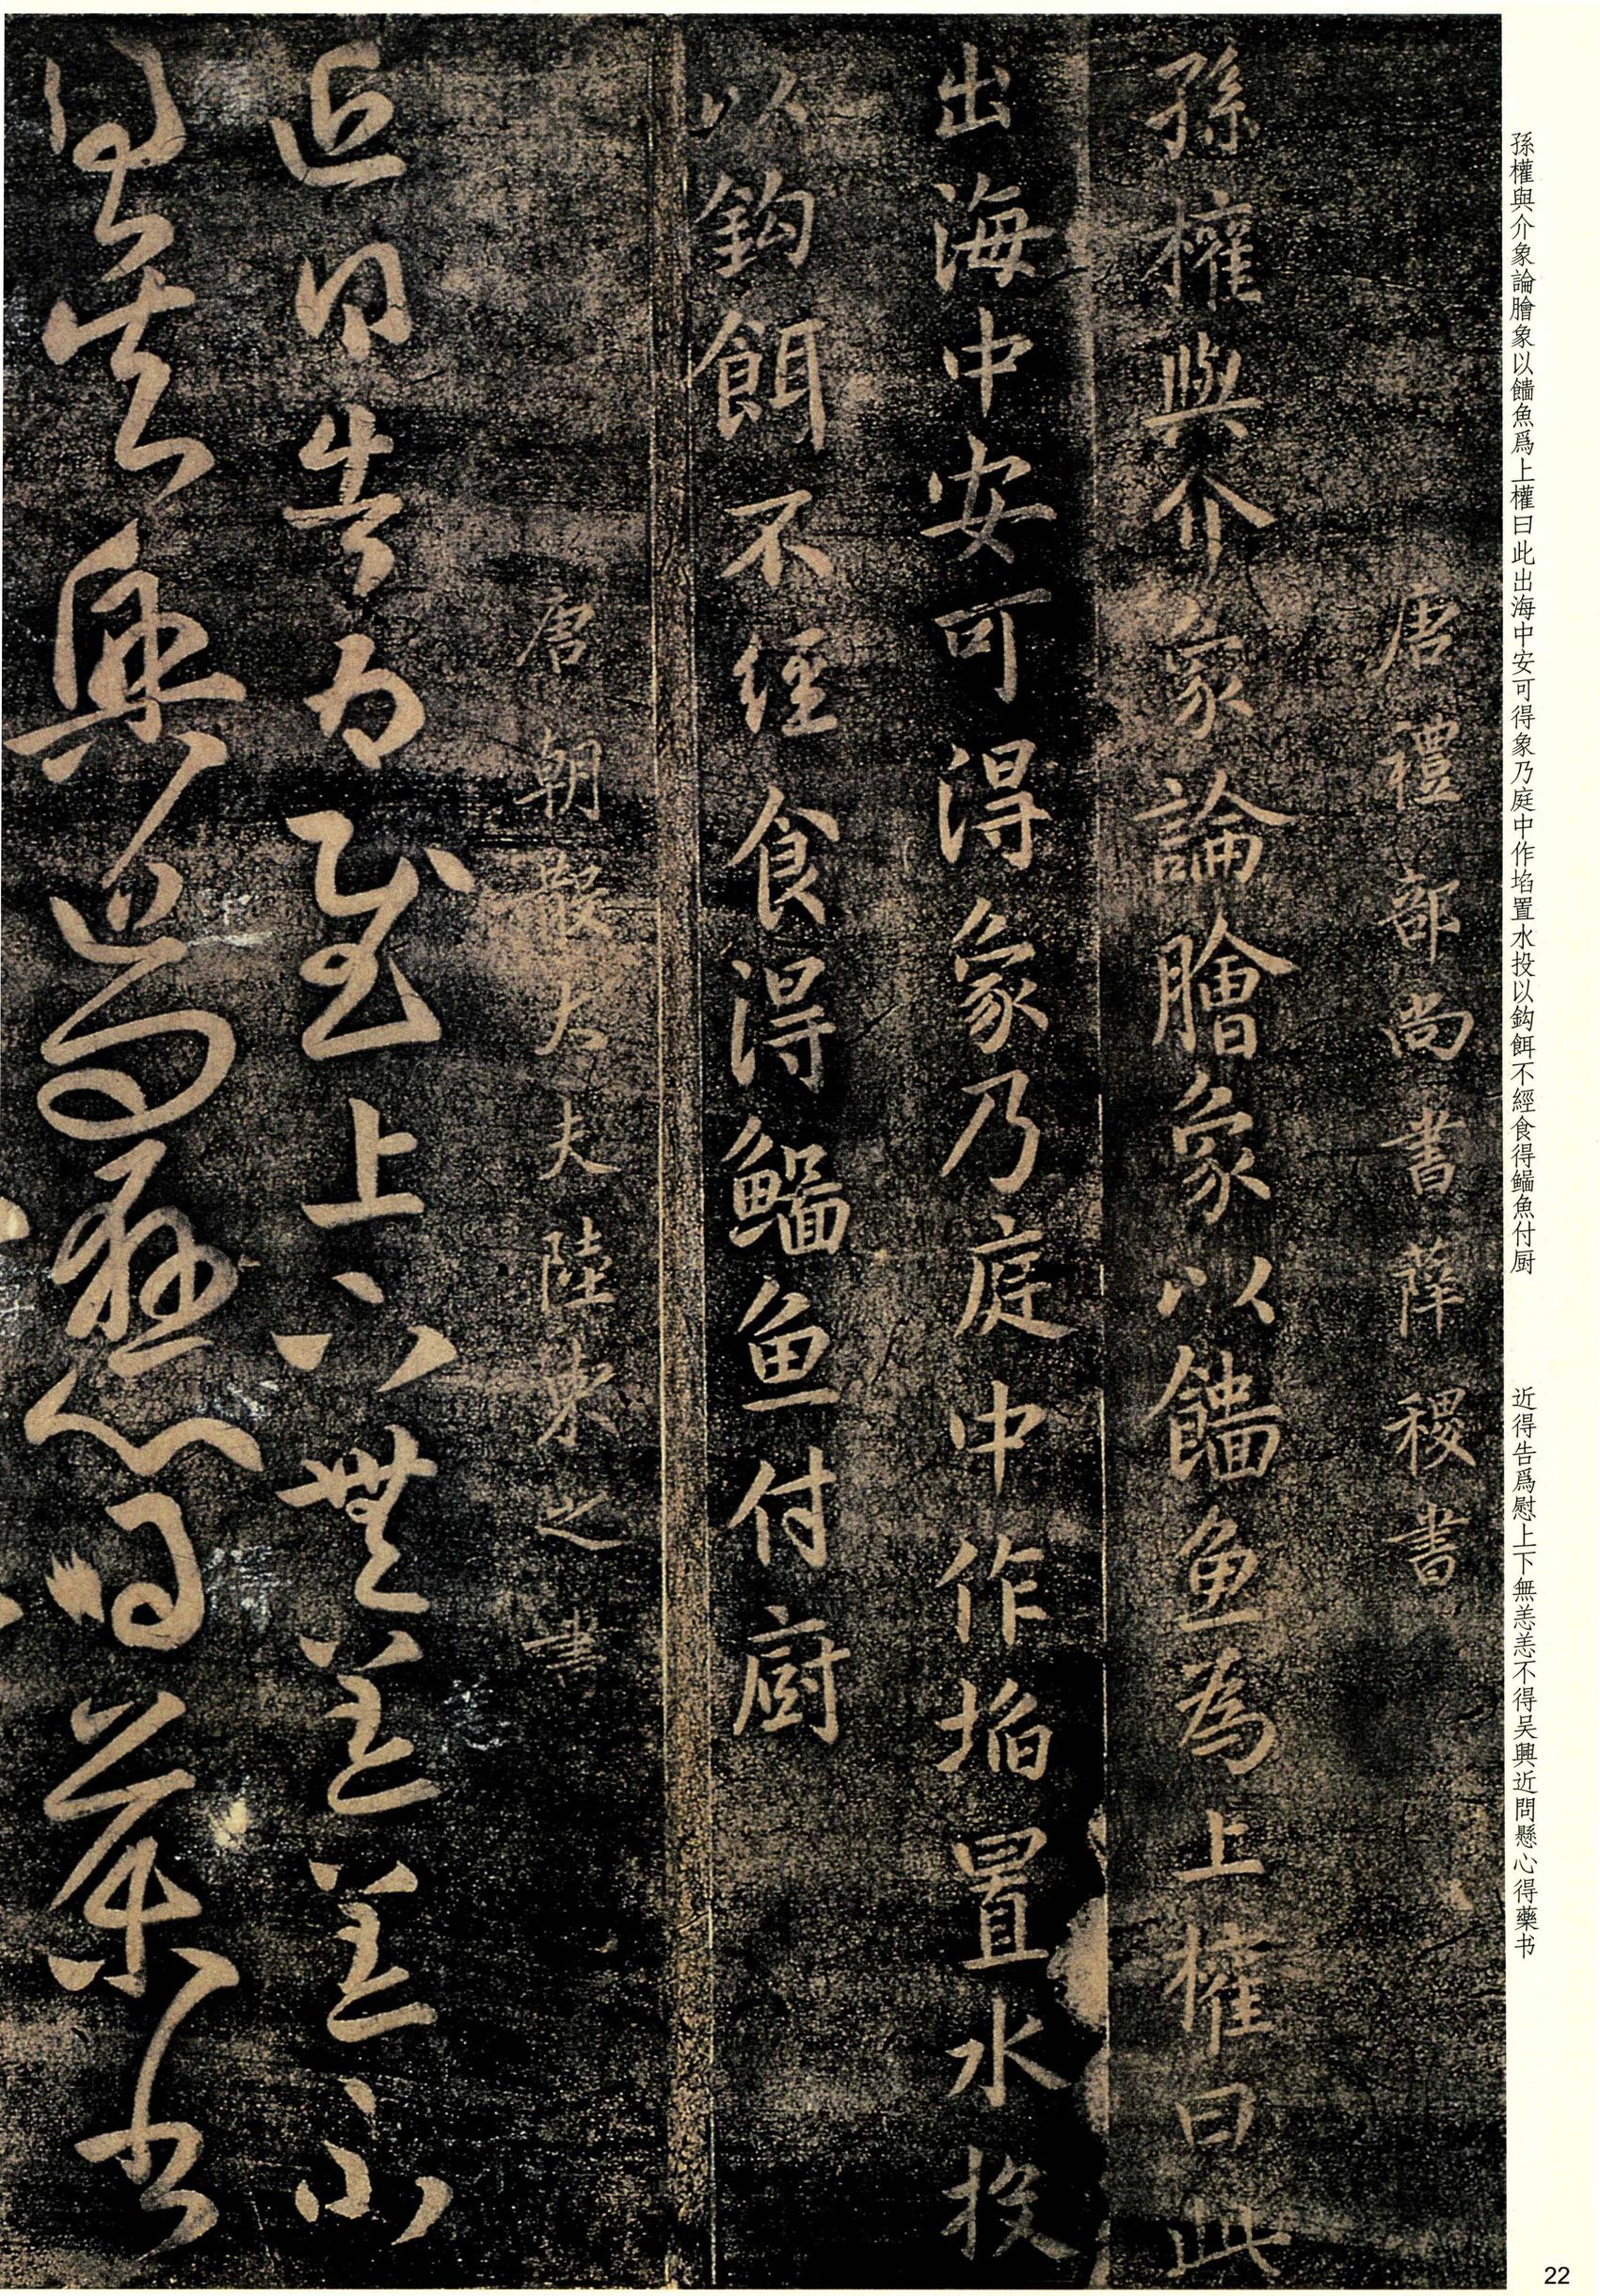 孫權與介象論膾象以䭉魚爲上權曰此出海中安可得象乃庭中作埳置水投以鈎餌不經食得鯔魚付厨
近得告爲慰上下無恙恙不得吴興近問懸心得藥书
唐禮部尚書薛稷書
孫權與介象論膾象以魚為上權曰此
出海中安可得象乃庭中作埳置水投
以鈎餌不經食得鯔魚付廚
唐朝散大夫陸柬之書
近得告為慰上下無恙恙不
得吴興近問懸心得藥书
22